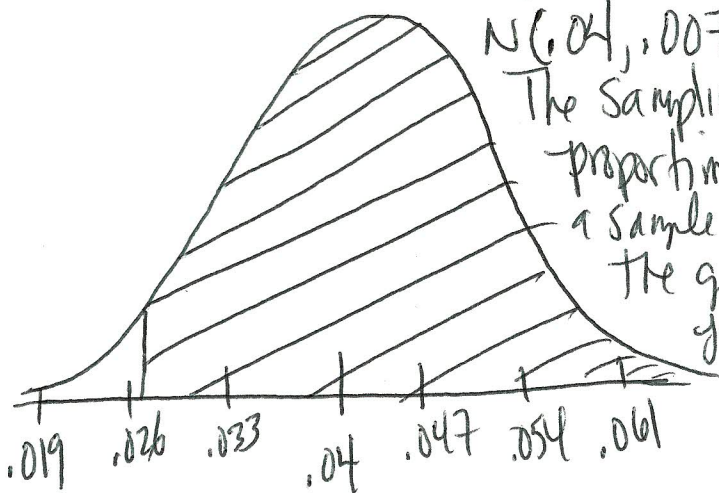 N(.04, .007
The sampli
proportin
a sample
the g
.019 .026 .033 .04 .047 .054 .061